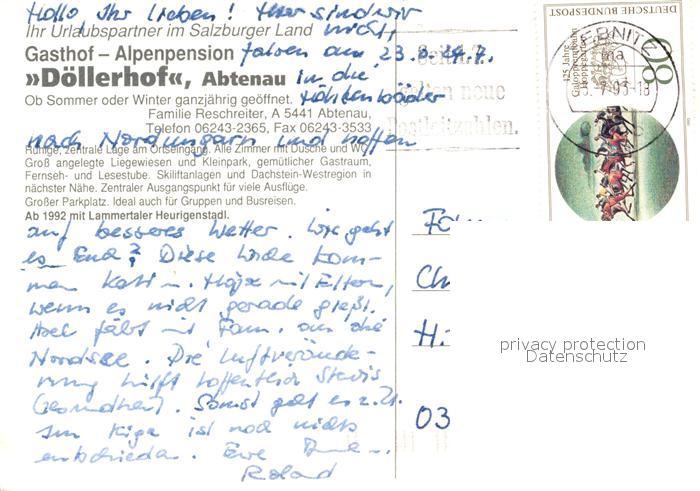 Hallo Ihr Lieben! Hier sind wir
Ihr Urlaubspartner im Salzburger Land
nicht,
Gasthof – Alpenpension
fahren am 23.
»Döllerhof«, Abtenau
in die
Ob Sommer oder Winter ganzjährig geöffnet.
Höhlenbäder
Familie Reschreiter, A 5441 Abtenau,
Telefon 06243-2365, Fax 06243-3533
nach Nordungarn und hoffen
Ruhige, zentrale Lage am Ortseingang. Alle Zimmer mit Dusche und WC.
Groß angelegte Liegewiesen und Kleinpark, gemütlicher Gastraum,
Fernseh- und Lesestube. Skiliftanlagen und Dachstein-Westregion in
nächster Nähe. Zentraler Ausgangspunkt für viele Ausflüge.
Großer Parkplatz. Ideal auch für Gruppen und Busreisen.
Ab 1992 mit Lammertaler Heurigenstadl.
auf besseres Wetter. Wie geht
es Euch? Diese Woche kom-
men Kati u. mit Eltern,
wenn es nicht gerade gießt.
fährt mit Fam. an die
Nordsee. Die Luftverände-
rung hilft hoffentlich
Gesundheit. Sonst geht es z.Zt.
Im Kiga ist noch nichts
entschieden. Eure
Roland
neue
Postleitzahlen.
DEUTSCHE BUNDESPOST
80
125 Jahre
SEBNITZ
-7.93-18
Ch
H
03
privacy protection
Datenschutz